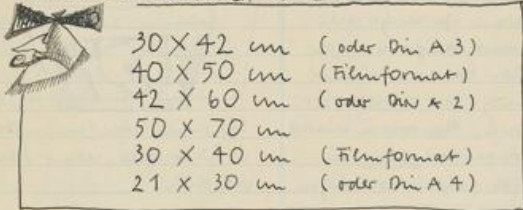 30 X 42 cm (oder Din A 3)
40 X 50 cm (Filmformat)
42 X 60 cm (oder Din A 2)
50 X 70 cm
30 X 40 cm (Filmformat)
21 X 30 cm (oder Din A 4)